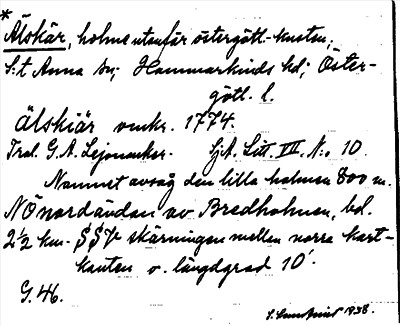 *
Älskär, holme utanför östergötl.-kusten;
S:t Anna sn; Hammarkinds hd; Öster-
götl. l.
Älskiär omkr. 1774.
Tral. G. A. Lejonancker. Sjk. Litt. VII. N:o 10.
Namnet avsåg den lilla holmen 800 m.
NÖ nordändan av Bredholmen, bel.
2 1/2 km. SSV skärningen mellan norra kart-
kanten o. längdgrad 10'.
G. 46.
1938.